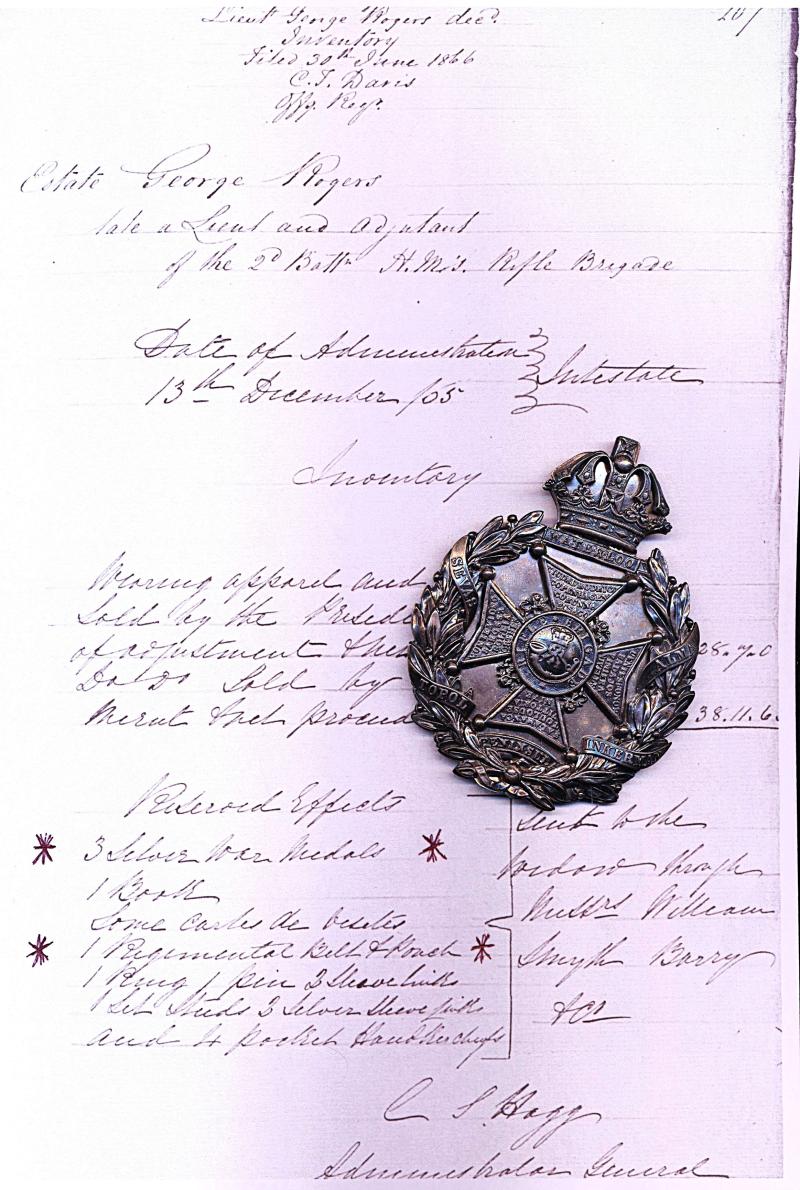 Lieut George Rogers decd.
Inventory
Filed 30th June 1866
C.T. Davis
Offg. Regr.
Estate George Rogers
late a Lieut and Adjutant
of the 2d Battn H.M's. Rifle Brigade
Date of Administration
13th December /65
Intestate
Inventory
Wearing apparel and
Sold by the
of adjustment
28.7.0
Do Do Sold by
38.11.6
WATERLOO
RIFLE BRIGADE
INKERMAN
Reserved Effects
3 Silver War Medals
1 Book
Some cartes de visites
1 Regimental Belt & Pouch
1 Ring 1 pin 3 Sleevelinks
1 Set Studs 3 Silver Sleevelinks
and 4 pocket Handkerchiefs
Sent to the
widow through
Messrs William
Smyth Barry
&Co
C S. Hogg
Administrator General